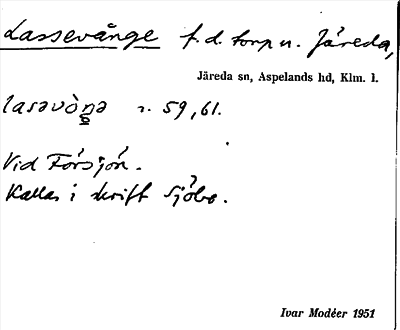 Lassevånge f.d. torp u. Järeda,
Järeda sn, Aspelands hd, Klm. l.
59, 61.
Vid Försjön.
Kallas i skrift Sjöbo.
Ivar Modéer 1951